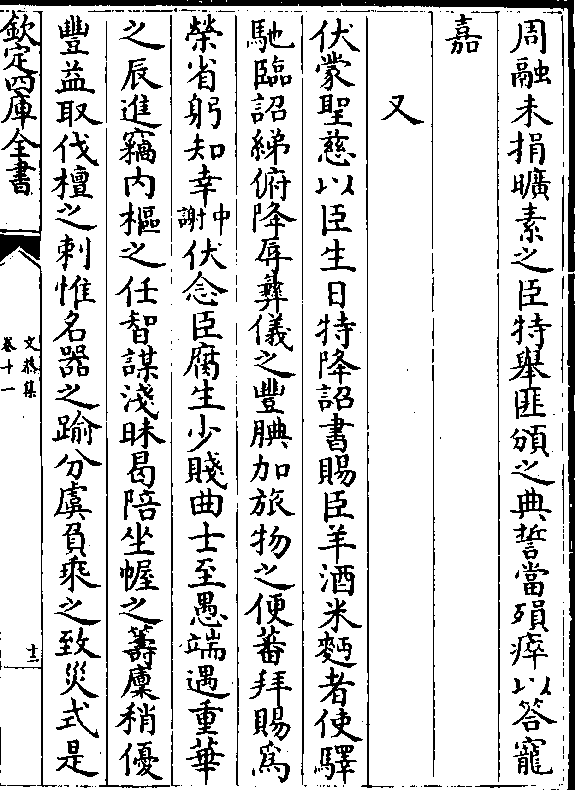 周融未捐曠素之臣特舉匪頒之典誓當殞瘁以答寵
嘉
又
伏蒙聖慈以臣生日特降詔書賜臣羊酒米麪者使驛
馳臨詔綈俯降辱彝儀之豐腆加旅物之便蕃拜賜爲
榮省躬知幸中謝伏念臣腐生少賤曲士至愚端遇重華
之辰進竊内樞之任智謀淺昧曷陪坐幄之籌廩稍優
豐益取伐檀之刺惟名器之踰分虞負乘之致災式是
欽定四庫全書
文恭集
卷十一
十三